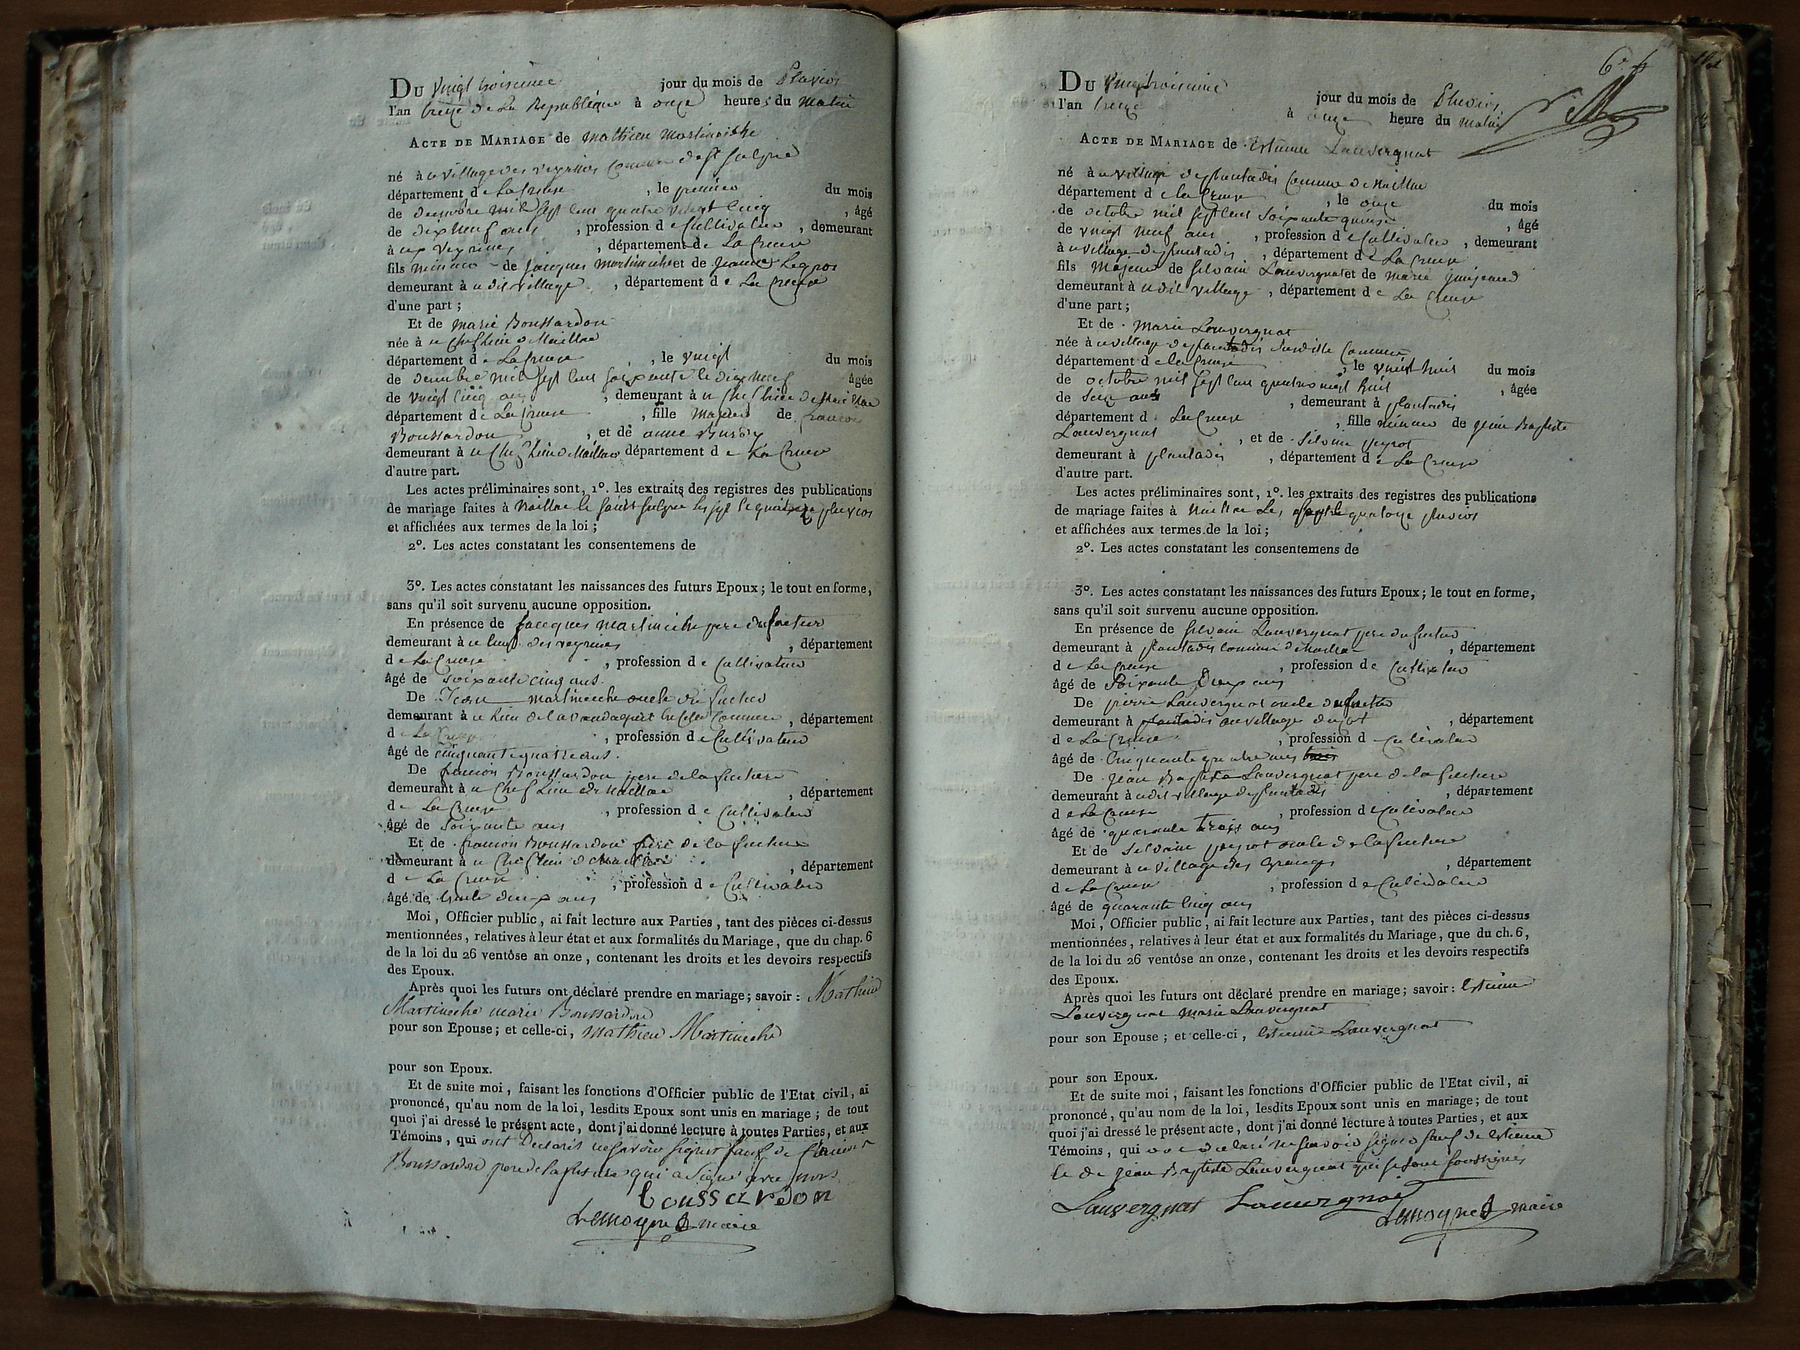 Du vingt troisieme jour du mois de Pluvios
l'an treize de La Republique à onze heures du matin
Acte de Mariage de mathieu martineche
né à u village des veyrines Commune de st Sulpice
département de La Creuse, le premier du mois
de decembre mil sept cent quatre vingt cinq, âgé
de dix neuf ans, profession de Cultivateur, demeurant
à ux veyrines, département de La Creuse
fils mineur de jacques martineche et de jeanne Legros
demeurant à u dit village, département de La Creuse
d'une part ;
Et de marie Boussardon
née à u chef Lieu de Naillac
département de La Creuse, le vingt du mois
de decembre mil sept cent soixante et dix neuf âgée
de vingt cinq ans, demeurant à u chef Lieu de Naillac
département de La Creuse, fille majeure de francois
Boussardon, et de anne Bussy
demeurant à u Chef Lieu de Naillac département de La Creuse
d'autre part.
Les actes préliminaires sont, 1°. les extraits des registres des publications
de mariage faites à Naillac et saint sulpice les sept et quatorze pluvios
et affichées aux termes de la loi ;
2°. Les actes constatant les consentemens de
3°. Les actes constatant les naissances des futurs Epoux ; le tout en forme,
sans qu'il soit survenu aucune opposition.
En présence de jacques martineche pere du futur
demeurant à u lieu des veyrines, département
de La Creuse, profession de Cultivateur
âgé de soixante cinq ans.
De Jean martineche oncle du futur
demeurant à u Lieu de Commune, département
de La Creuse, profession de Cultivateur
âgé de cinquante quatre ans.
De francois Boussardon pere de la future
demeurant à u Chef Lieu de Naillac, département
de La Creuse, profession de Cultivateur
âgé de soixante ans
Et de francois Boussardon frere de la future
demeurant à u Chef Lieu de Naillac, département
de La Creuse, profession de Cultivateur
âgé de trente deux ans
Moi, Officier public, ai fait lecture aux Parties, tant des pièces ci-dessus
mentionnées, relatives à leur état et aux formalités du Mariage, que du chap. 6
de la loi du 26 ventôse an onze, contenant les droits et les devoirs respectifs
des Epoux.
Après quoi les futurs ont déclaré prendre en mariage ; savoir : Mathieu
Martineche marie Boussardon
pour son Epouse ; et celle-ci, mathieu Martineche
pour son Epoux.
Et de suite moi, faisant les fonctions d'Officier public de l'Etat civil, ai
prononcé, qu'au nom de la loi, lesdits Epoux sont unis en mariage ; de tout
quoi j'ai dressé le présent acte, dont j'ai donné lecture à toutes Parties, et aux
Témoins, qui ont Declaré ne savoir signer sauf de francois
Boussardon pere de la future qui a signé avec nous
boussardon
Lemoyne maire
6
Du vingt troisieme jour du mois de Pluvios
l'an treize à onze heure du matin
Acte de Mariage de Estienne Lauvergnat
né à u village des plantadis Commune de Naillac
département de la Creuse, le onze du mois
de octobre mil sept cent soixante quinze, âgé
de vingt neuf ans, profession de Cultivateur, demeurant
à u village des plantadis, département de La Creuse
fils Majeur de Silvain Lauvergnat et de marie
demeurant à u dit village, département de La Creuse
d'une part ;
Et de Marie Lauvergnat
née à u village des plantadis susditte Commune
département de la Creuse, le vingt huit du mois
de octobre mil sept cent quatre vingt huit, âgée
de seize ans, demeurant à plantadis
département d La Creuse, fille mineure de jean Baptiste
Lauvergnat, et de Silvine peyrot
demeurant à plantadis, département de La Creuse
d'autre part.
Les actes préliminaires sont, 1°. les extraits des registres des publications
de mariage faites à Naillac Les sept et quatorze pluvios
et affichées aux termes de la loi ;
2°. Les actes constatant les consentemens de
3°. Les actes constatant les naissances des futurs Epoux ; le tout en forme,
sans qu'il soit survenu aucune opposition.
En présence de Silvain Lauvergnat pere du futur
demeurant à plantadis commune de Naillac, département
de La Creuse, profession de Cultivateur
âgé de Soixante Deux ans
De pierre Lauvergnat oncle du futur
demeurant à plantadis au village, département
de La Creuse, profession d Cultivateur
âgé de Cinquante quatre ans
De jean Baptiste Lauvergnat pere de la future
demeurant à udit village des plantadis, département
de La Creuse, profession de Cultivateur
âgé de quarante trois ans
Et de Silvain peyrot oncle de la future
demeurant à u village des Granges, département
de La Creuse, profession de Cultivateur
âgé de quarante cinq ans
Moi, Officier public, ai fait lecture aux Parties, tant des pièces ci-dessus
mentionnées, relatives à leur état et aux formalités du Mariage, que du ch. 6,
de la loi du 26 ventôse an onze, contenant les droits et les devoirs respectifs
des Epoux.
Après quoi les futurs ont déclaré prendre en mariage ; savoir : Estienne
Lauvergnat Marie Lauvergnat
pour son Epouse ; et celle-ci, Estienne Lauvergnat
pour son Epoux.
Et de suite moi, faisant les fonctions d'Officier public de l'Etat civil, ai
prononcé, qu'au nom de la loi, lesdits Epoux sont unis en mariage ; de tout
quoi j'ai dressé le présent acte, dont j'ai donné lecture à toutes Parties, et aux
Témoins, qui ont declaré ne savoir signer sauf de Estienne
et de jean Baptiste Lauvergnat qui se sont soussignés
Lauvergnat Lauvergnat Lemoyne maire